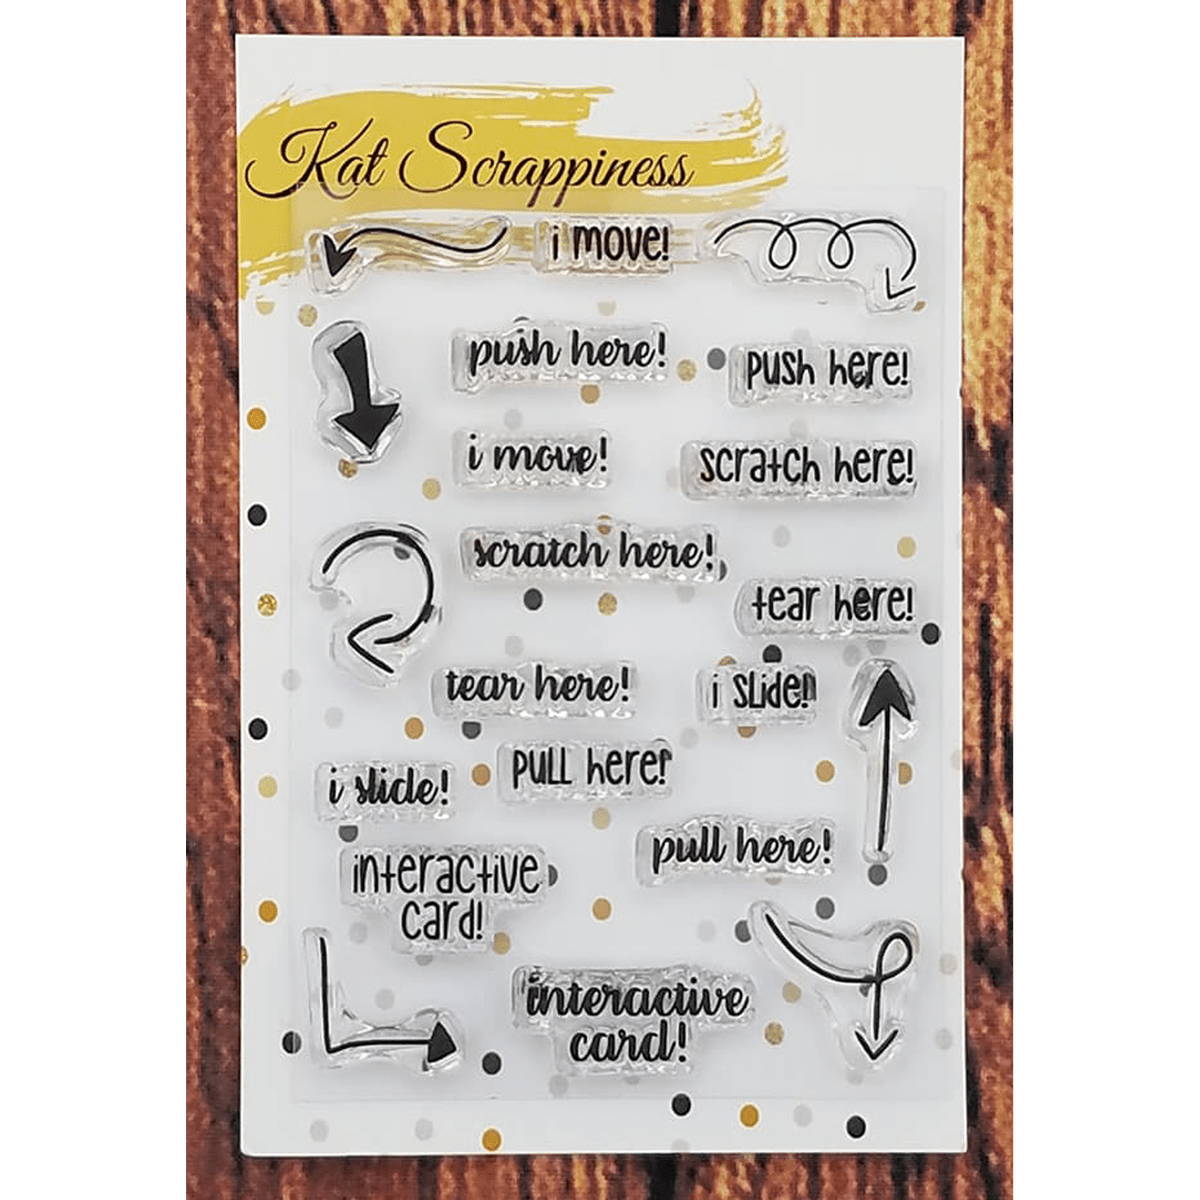 Kat Scrappiness
i move!
push here!
push here!
i move!
scratch here!
scratch here!
tear here!
tear here!
i slide!
pull here!
i slide!
pull here!
interactive
card!
interactive
card!